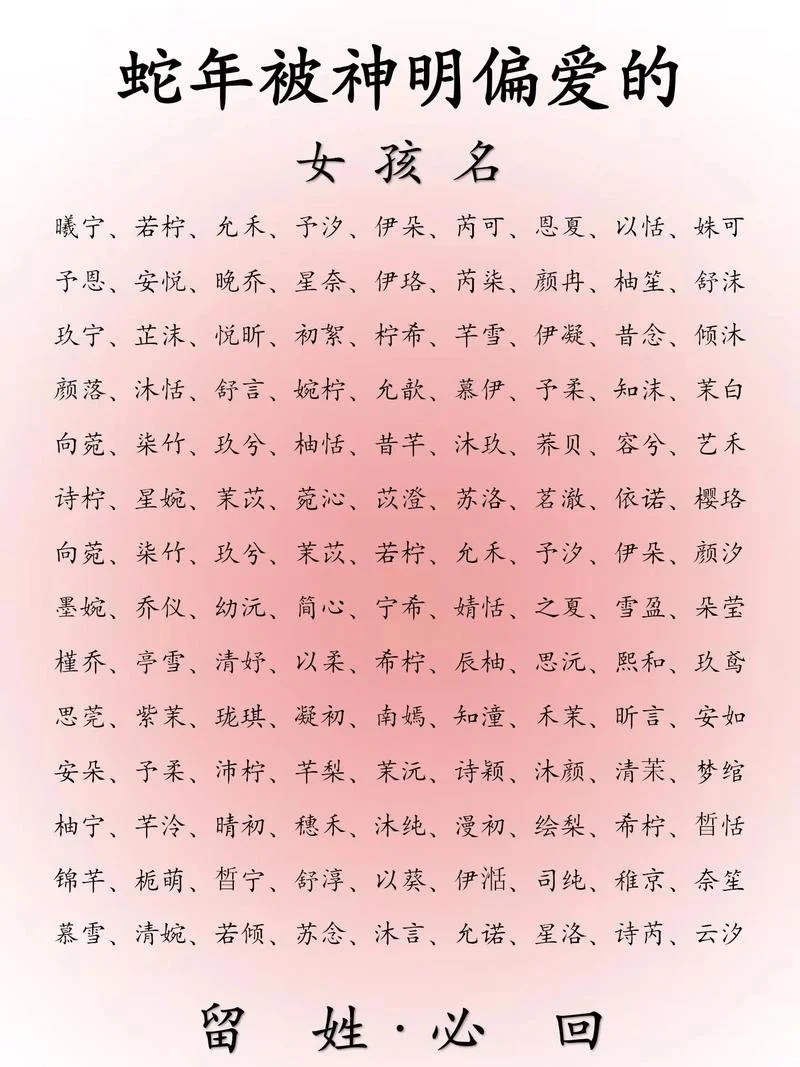 蛇年被神明偏爱的
女孩名
曦宁、若柠、允禾、予汐、伊朵、芮可、恩夏、以恬、姝可
予恩、安悦、晚乔、星奈、伊珞、芮柒、颜冉、柚笙、舒沫
玖宁、芷沫、悦昕、初絮、柠希、芊雪、伊凝、昔念、倾沐
颜落、沐恬、舒言、婉柠、允歆、慕伊、予柔、知沫、茉白
向菀、柒竹、玖兮、柚恬、昔芊、沐玖、荞贝、容兮、艺禾
诗柠、星婉、茉苡、菀沁、苡澄、苏洛、茗澈、依诺、樱珞
向菀、柒竹、玖兮、茉苡、若柠、允禾、予汐、伊朵、颜汐
墨婉、乔仪、幼沅、简心、宁希、婧恬、之夏、雪盈、朵莹
槿乔、亭雪、清妤、以柔、希柠、辰柚、思沅、熙和、玖鸢
思莞、紫茉、珑琪、凝初、南嫣、知潼、禾茉、昕言、安如
安朵、予柔、沛柠、芊梨、茉沅、诗颖、沐颜、清茉、梦绾
柚宁、芊泠、晴初、穗禾、沐纯、漫初、绘梨、希柠、皙恬
锦芊、栀萌、皙宁、舒淳、以葵、伊湉、司纯、稚京、奈笙
慕雪、清婉、若倾、苏念、沐言、允诺、星洛、诗芮、云汐
留 姓·必 回